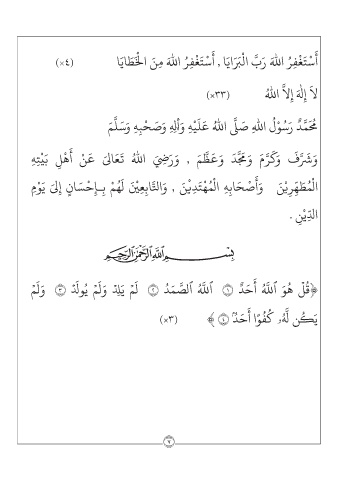 أَسْتَغْفِرُ اللهَ رَبَّ الْبَرَايَا , أَسْتَغْفِرُ اللهَ مِنَ الْخَطَايَا (×٤)
لاَ إِلٰهَ إِلاَّ اللهُ (×٣٣)
مُحَمَّدٌ رَسُوْلُ اللهِ صَلَّى اللهُ عَلَيْهِ وَاٰلِهِ وَصَحْبِهِ وَسَلَّمَ
وَشَرَّفَ وَكَرَّمَ وَمَجَّدَ وَعَظَّمَ , وَرَضِيَ اللهُ تَعَالَى عَنْ أَهْلِ بَيْتِهِ
الْمُطَهَّرِيْنَ وَأَصْحَابِهِ الْمُهْتَدِيْنَ , وَالتَّابِعِيْنَ لَهُمْ بِإِحْسَانٍ إِلىَ يَوْمِ
الدِّيْنِ .
بِسْمِ ٱللَّهِ ٱلرَّحْمَٰنِ ٱلرَّحِيمِ
﴿قُلْ هُوَ ٱللَّهُ أَحَدٌ ۝١ ٱللَّهُ ٱلصَّمَدُ ۝٢ لَمْ يَلِدْ وَلَمْ يُولَدْ ۝٣ وَلَمْ
يَكُن لَّهُۥ كُفُوًا أَحَدٌۢ ۝٤﴾ (×٣)
٢